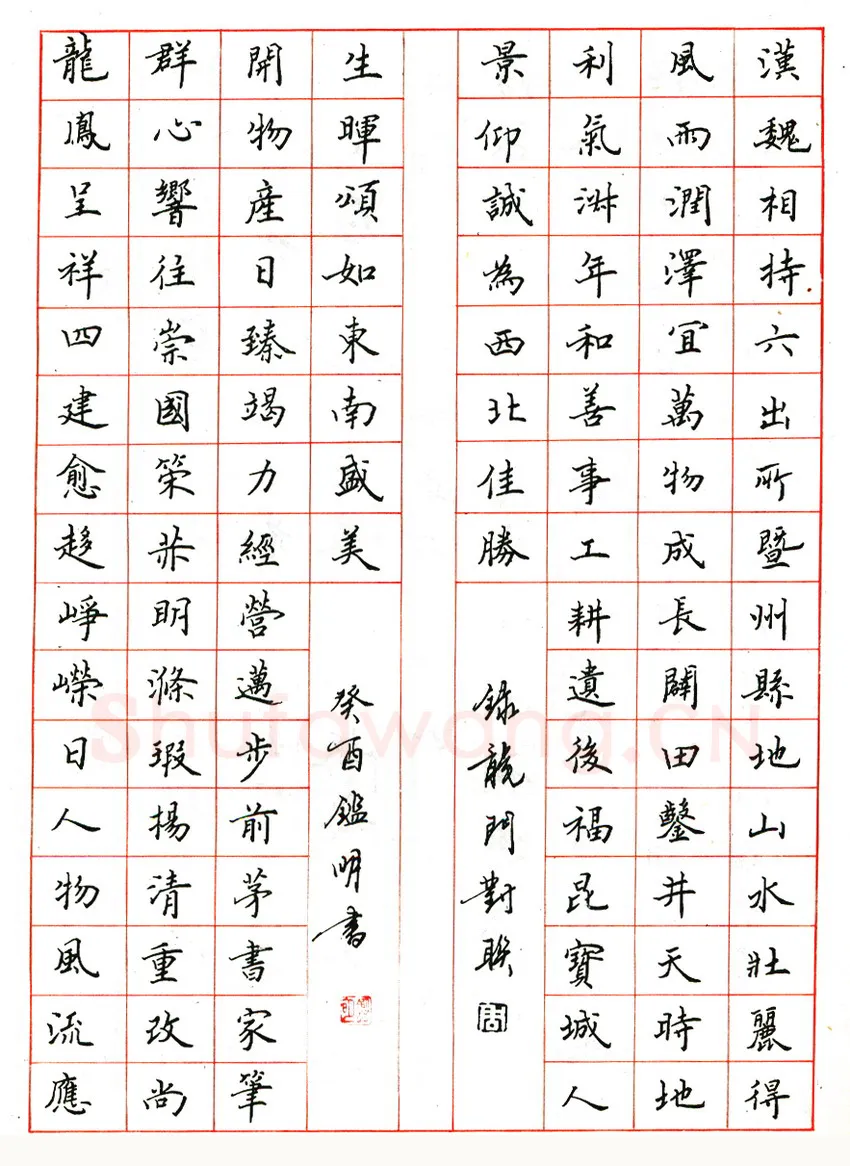 漢魏相持六出所暨州縣地山水壯麗得
風雨潤澤宜萬物成長闢田鑿井天時地
利氣淑年和善事工耕遺後福昆寶城人
景仰誠為西北佳勝
錄龍門對聯
周
龍鳳呈祥四建愈趍崢嶸日人物風流應
群心響往崇國策明滌瑕揚清重改尚
開物產日臻竭力經營邁步前茅書家筆
生暉頌如東南盛美
癸酉鑑明書
Shufawang.CN